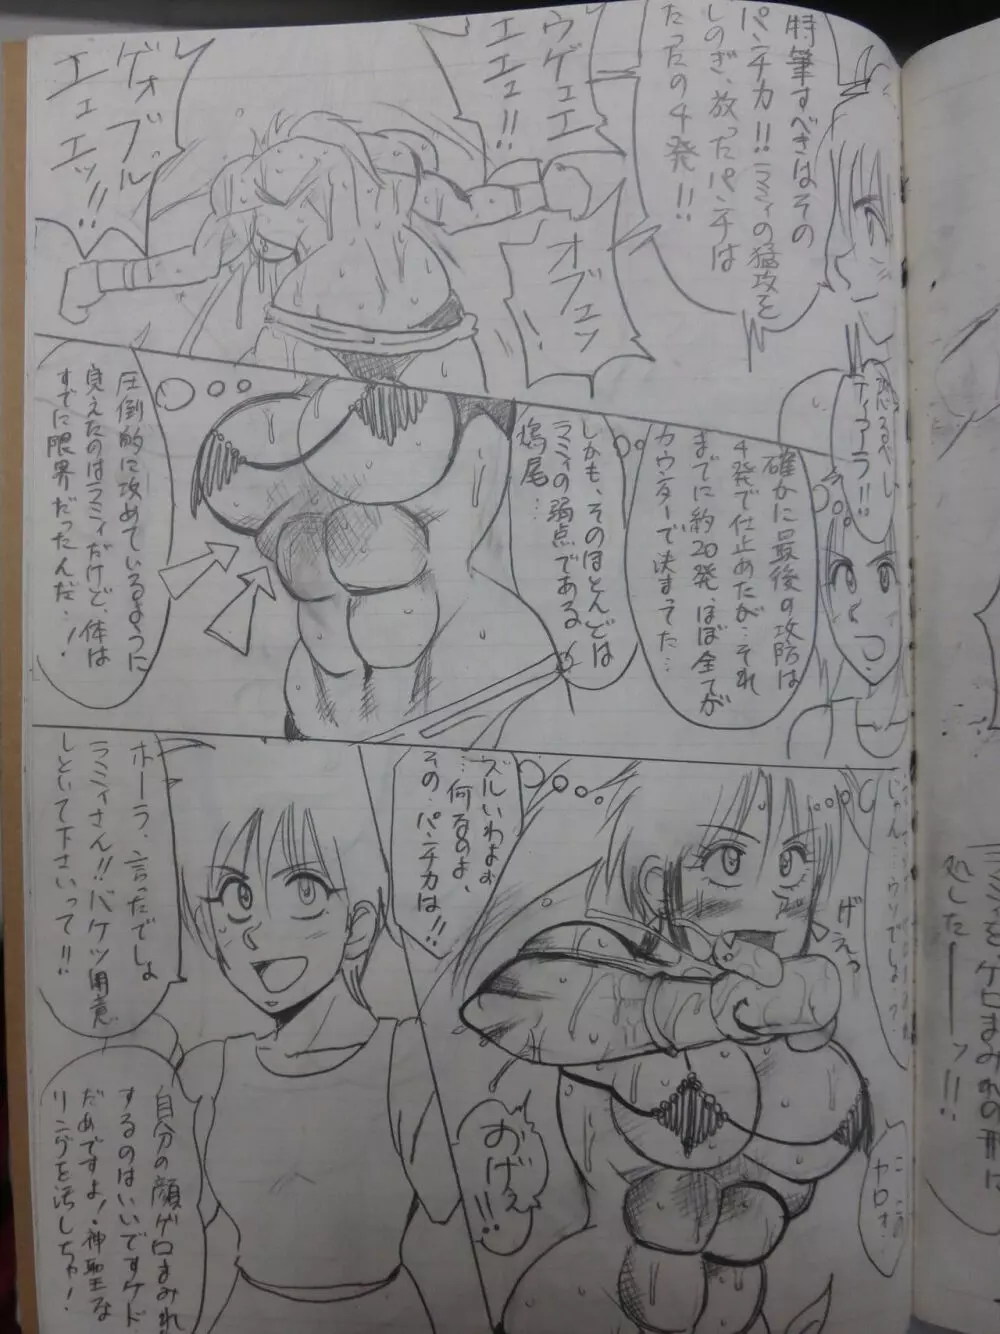 特筆すべきはその
パンチ力!!ラミィの猛攻を
しのぎ、放ったパンチは
たったの4発!!
ウゲエエ
エエェ!!
オブェッ
ゲォブル
エェェ
エッ!!
恐るべし
ティアーラ!!
確かに最後の攻防は
4発で仕止めたが…それ
までに約20発、ほぼ全てが
カウンターで決まってた…
しかも、そのほとんどは
ラミィの弱点である
鳩尾…
圧倒的に攻めているように
見えたのはラミィだけど、体は
すでに限界だったんだ…!
げえっ
ズルいわよぉ
…何なのよ、
その、パンチカは!!
おげぇ
!!
ホーラ、言ったでしょ
ラミィさん!!バケツ用意
しといて下さいって!!
自分の顔ゲロまみれ
するのはいいですケド
だめですよ!神聖な
リングを汚しちゃ!